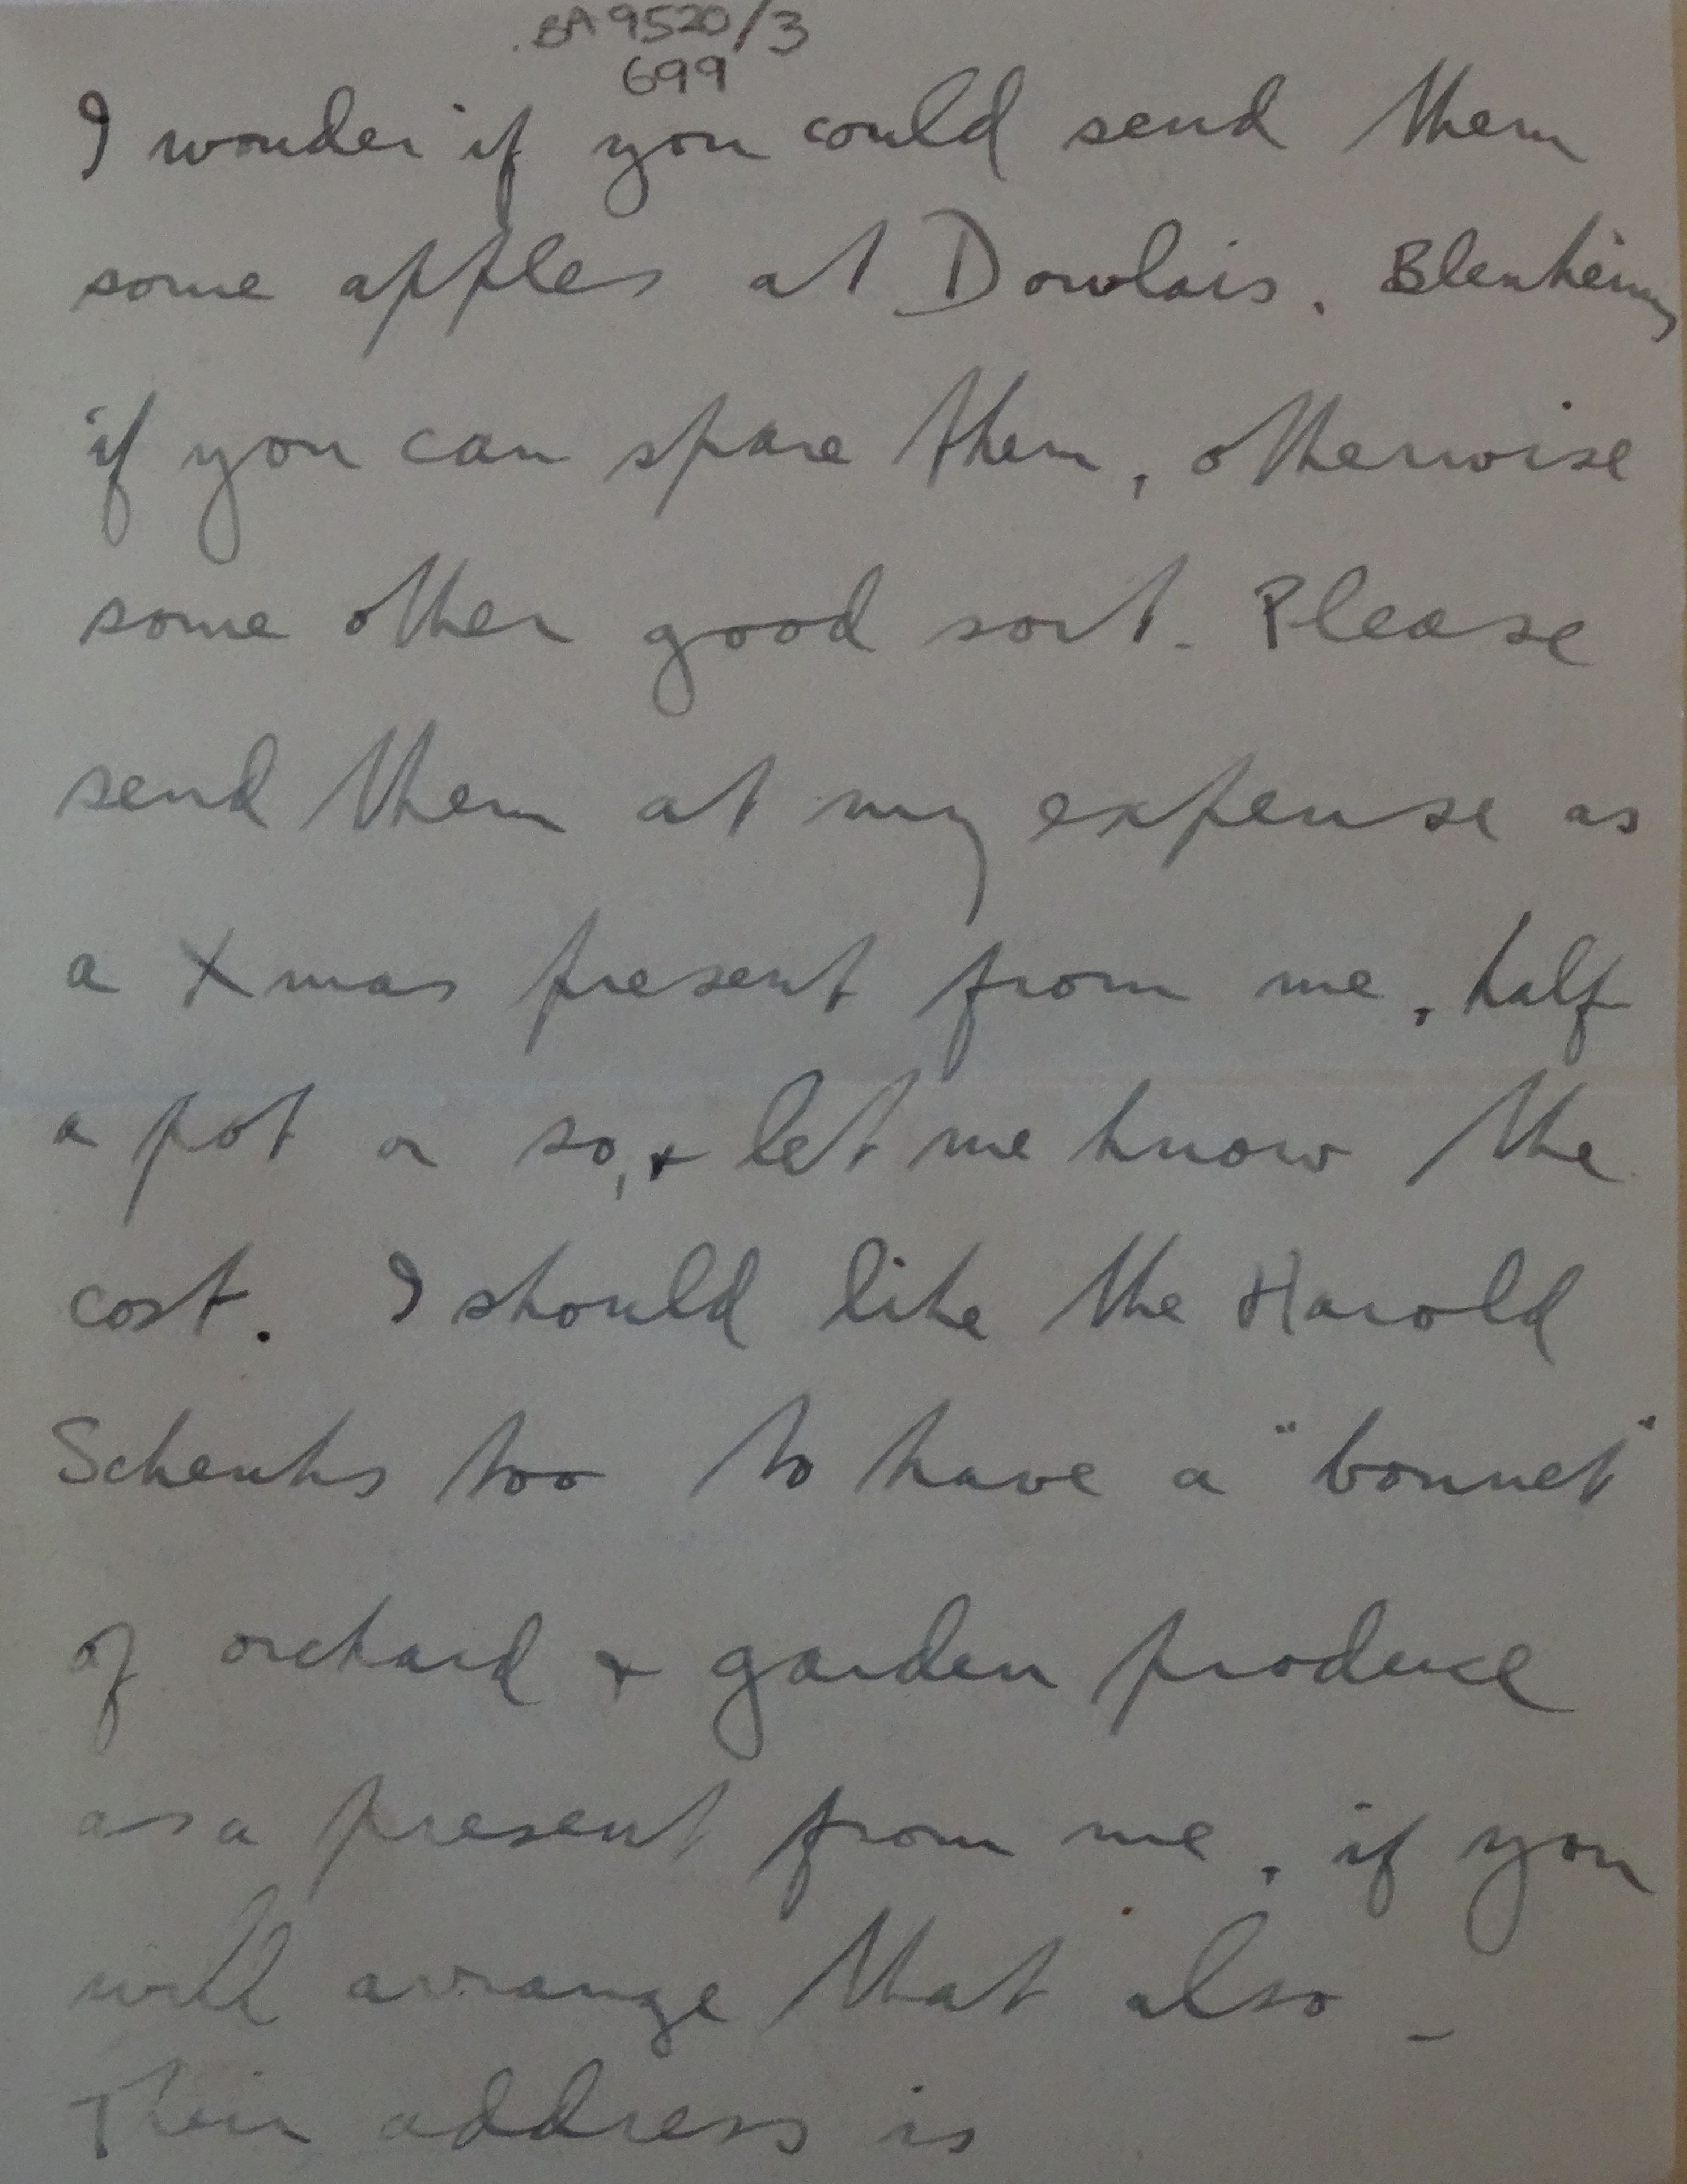 BA 9520/3
699
I wonder if you could send them
some apples at Dowlais. Blenheims
if you can spare them, otherwise
some other good sort. Please
send them at my expense as
a Xmas present from me, half
a pot or so, & let me know the
cost. I should like the Harold
Schenks too to have a "bonnet"
of orchard & garden produce
as a present from me, if you
will arrange that also _
Their address is